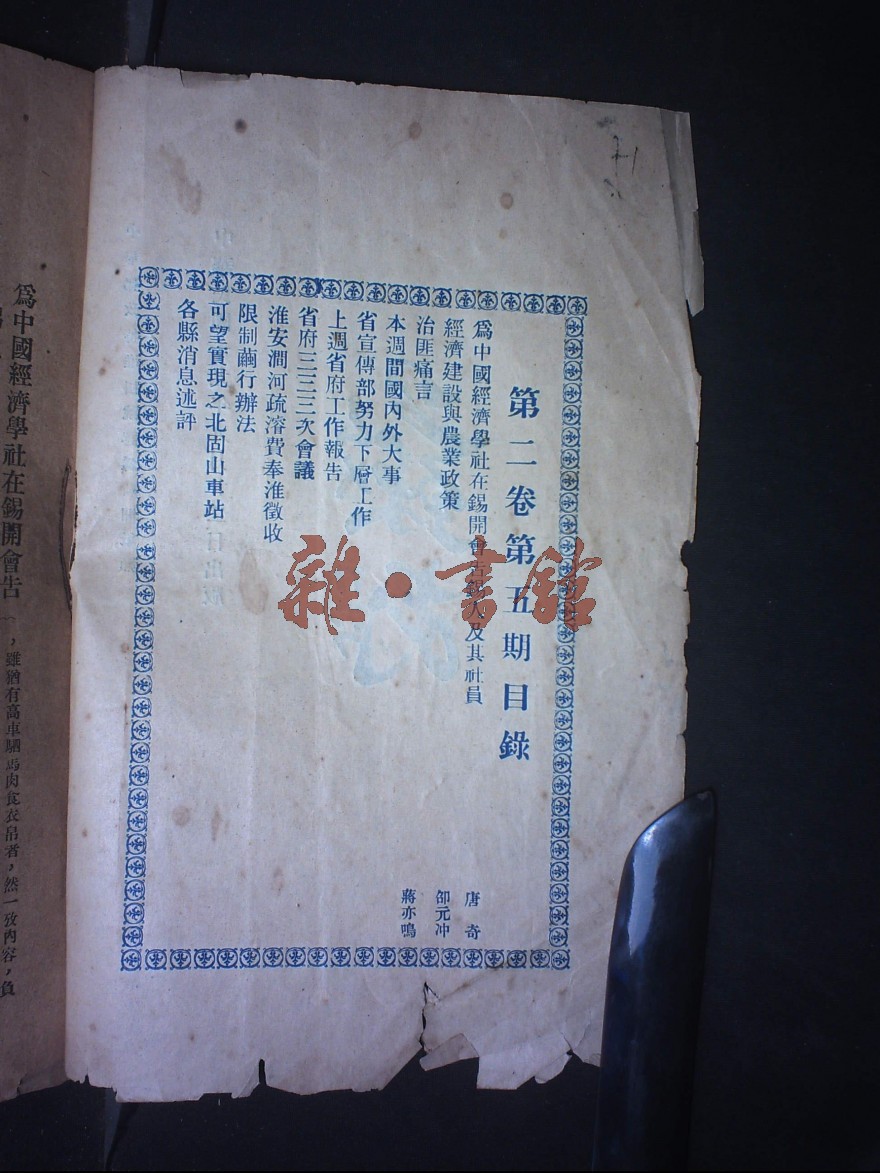 第二卷第五期目錄
爲中國經濟學社在錫開會告錫人及其社員 唐奇
經濟建設與農業政策 邵元冲
治匪痛言 蔣亦鳴
本週間國內外大事
省宣傳部努力下層工作
上週省府工作報告
省府三三三次會議
淮安澗河疏溶費奉淮徵收
限制繭行辦法
可望實現之北固山車站
各縣消息述評
雜·書館
爲中國經濟學社在錫開會告
，雖猶有高車駟馬肉食衣帛者，然一攷內容，負